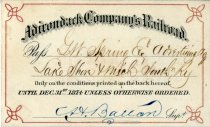 Adirondack Company's Railroad.
Pass
Lake Shore & Mich South Ry
Only on the conditions printed on the back hereof,
UNTIL DEC. 31st 1874 UNLESS OTHERWISE ORDERED.
Supt